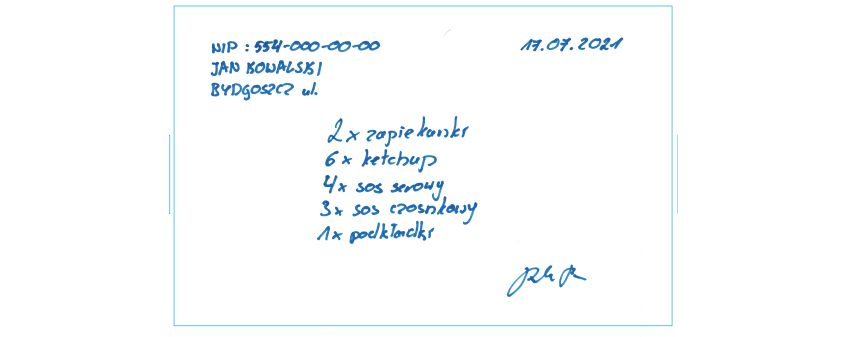 NIP : 554-000-00-00
17.07.2021
JAN KOWALSKI
BYDGOSZCZ ul.
2 x zapiekanki
6 x ketchup
4 x sos serowy
3 x sos czosnkowy
1 x podkładki